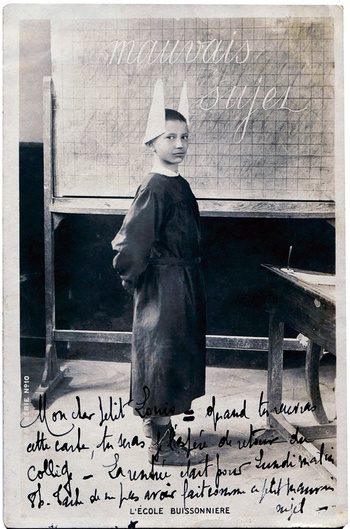 mauvais
sujet
SÉRIE No 10
Mon cher petit Louis = quand tu recevras
cette carte, tu seras j'espère de retour du
collège – La rentrée était pour Lundi matin
8h. Tâche de ne pas avoir fait comme ce petit mauvais
sujet –
L'ÉCOLE BUISSONNIERE